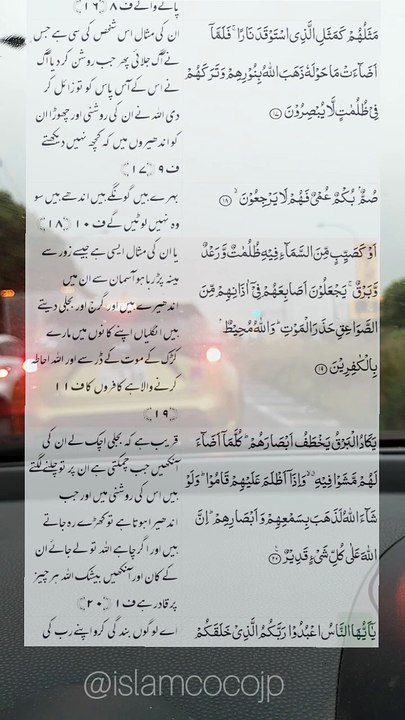 پانے والے ف ۸ ﴿۱۶﴾
مَثَلُهُمْ كَمَثَلِ الَّذِی اسْتَوْقَدَ نَارًا ۚ فَلَمَّاۤ
اَضَآءَتْ مَا حَوْلَهٗ ذَهَبَ اللّٰهُ بِنُوْرِهِمْ وَ تَرَكَهُمْ
فِیْ ظُلُمٰتٍ لَّا یُبْصِرُوْنَ ﴿۱۷﴾
ان کی مثال اس شخص کی سی ہے جس
نے آگ جلائی پھر جب روشن کر دیا آگ
نے اس کے آس پاس کو تو زائل کر
دی اللہ نے ان کی روشنی اور چھوڑا ان
کو اندھیروں میں کہ کچھ نہیں دیکھتے
ف ۹ ﴿۱۷﴾
صُمٌّۢ بُكْمٌ عُمْیٌ فَهُمْ لَا یَرْجِعُوْنَ ﴿۱۸﴾
بہرے ہیں گونگے ہیں اندھے ہیں سو
وہ نہیں لوٹیں گے ف ۱۰ ﴿۱۸﴾
اَوْ كَصَیِّبٍ مِّنَ السَّمَآءِ فِیْهِ ظُلُمٰتٌ وَّ رَعْدٌ
وَّ بَرْقٌ ۚ یَجْعَلُوْنَ اَصَابِعَهُمْ فِیْۤ اٰذَانِهِمْ مِّنَ
الصَّوَاعِقِ حَذَرَ الْمَوْتِ ؕ وَ اللّٰهُ مُحِیْطٌۢ
بِالْكٰفِرِیْنَ ﴿۱۹﴾
یا ان کی مثال ایسی ہے جیسے زور سے
مینہ پڑ رہا ہو آسمان سے ان میں
اندھیرے ہیں اور گرج اور بجلی دیتے
ہیں انگلیاں اپنے کانوں میں مارے
کڑک کے موت کے ڈر سے اور اللہ احاطہ
کرنے والا ہے کافروں کا ف ۱۱
﴿۱۹﴾
یَكَادُ الْبَرْقُ یَخْطَفُ اَبْصَارَهُمْ ؕ كُلَّمَاۤ اَضَآءَ
لَهُمْ مَّشَوْا فِیْهِ ۙۗ وَ اِذَاۤ اَظْلَمَ عَلَیْهِمْ قَامُوْا ؕ وَ لَوْ
شَآءَ اللّٰهُ لَذَهَبَ بِسَمْعِهِمْ وَ اَبْصَارِهِمْ ؕ اِنَّ
اللّٰهَ عَلٰی كُلِّ شَیْءٍ قَدِیْرٌ ﴿۲۰﴾
قریب ہے کہ بجلی اچک لے ان کی
آنکھیں جب چمکتی ہے ان پر تو چلنے لگتے
ہیں اس کی روشنی میں اور جب
اندھیرا ہوتا ہے تو کھڑے رہ جاتے
ہیں اور اگر چاہے اللہ تو لے جائے ان
کے کان اور آنکھیں بیشک اللہ ہر چیز
پر قادر ہے ف ۱ ﴿۲۰﴾
یٰۤاَیُّهَا النَّاسُ اعْبُدُوْا رَبَّكُمُ الَّذِیْ خَلَقَكُمْ
اے لوگوں بندگی کرو اپنے رب کی
@islamcocojp